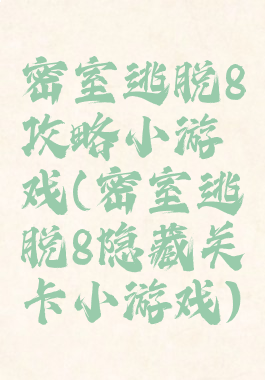 密室逃脱8
攻略小游
戏(密室逃
脱8隐藏关
卡小游戏)